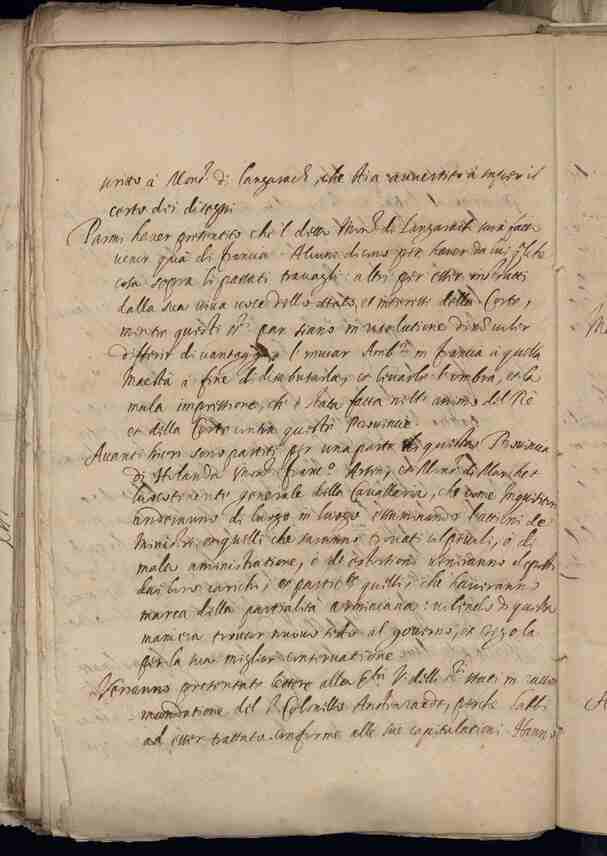 scritto à Mons.r di Langarach, che stia avvertito à saper il
certo dei dissegni.
Parmi haver penetrato che'l detto Mons.r di Langarach sarà fatto
venir quà di francia. Alcuni dicono per haver da lui qualche
cosa sopra li passati travagli: altri per esser instrutti
dalla sua viva voce dello stato, et interessi della Corte,
mentre questi SS.ri par siano in risolutione di non voler
differir di vantaggio l'inviar Amb.ri in francia à quella
Maestà à fine di disabusarla, et levarle l'ombra, et la
mala impressione, che è stata fatta nell'animo del Rè
et della Corte contra queste Provincie.
Avanti hieri sono partiti per una parte di questa Provincia
di Holanda Mons.r Franc.o Arsen, et Mons.r di Marchet
luocotenente generale della Cavalleria, che come Inquisitori
anderanno di luogo in luogo essaminando l'attioni de
Ministri, et quelli che saranno trovati colpevoli, ò di
mala aministratione, ò di estorsioni veniranno espulsi
dai loro carichi; et partic.te quelli, che haveranno
marca della partialità arminiana: volendo di questa
maniera trovar nuovo sesto al governo, et regola
per la sua miglior conservatione.
Veranno presentate lettere alla Ser.tà V. delli SS.ri stati in racco-
mandatione del S.r Colonello
ad esser trattato conforme alle sue capitulationi. Hanno